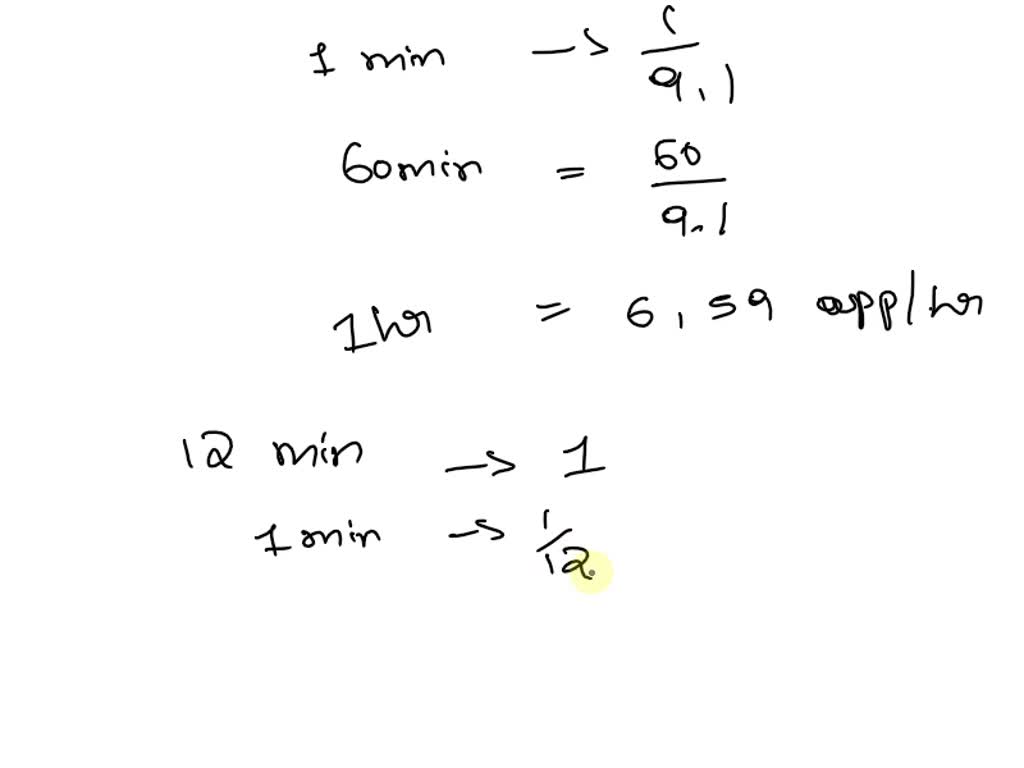 1 min → 1/9.1
60min = 60/9.1
1hr = 6.59 app/hr
12 min → 1
1 min → 1/12